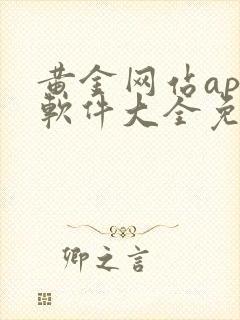 黄金网佔ap
軟件大全免
卿之言